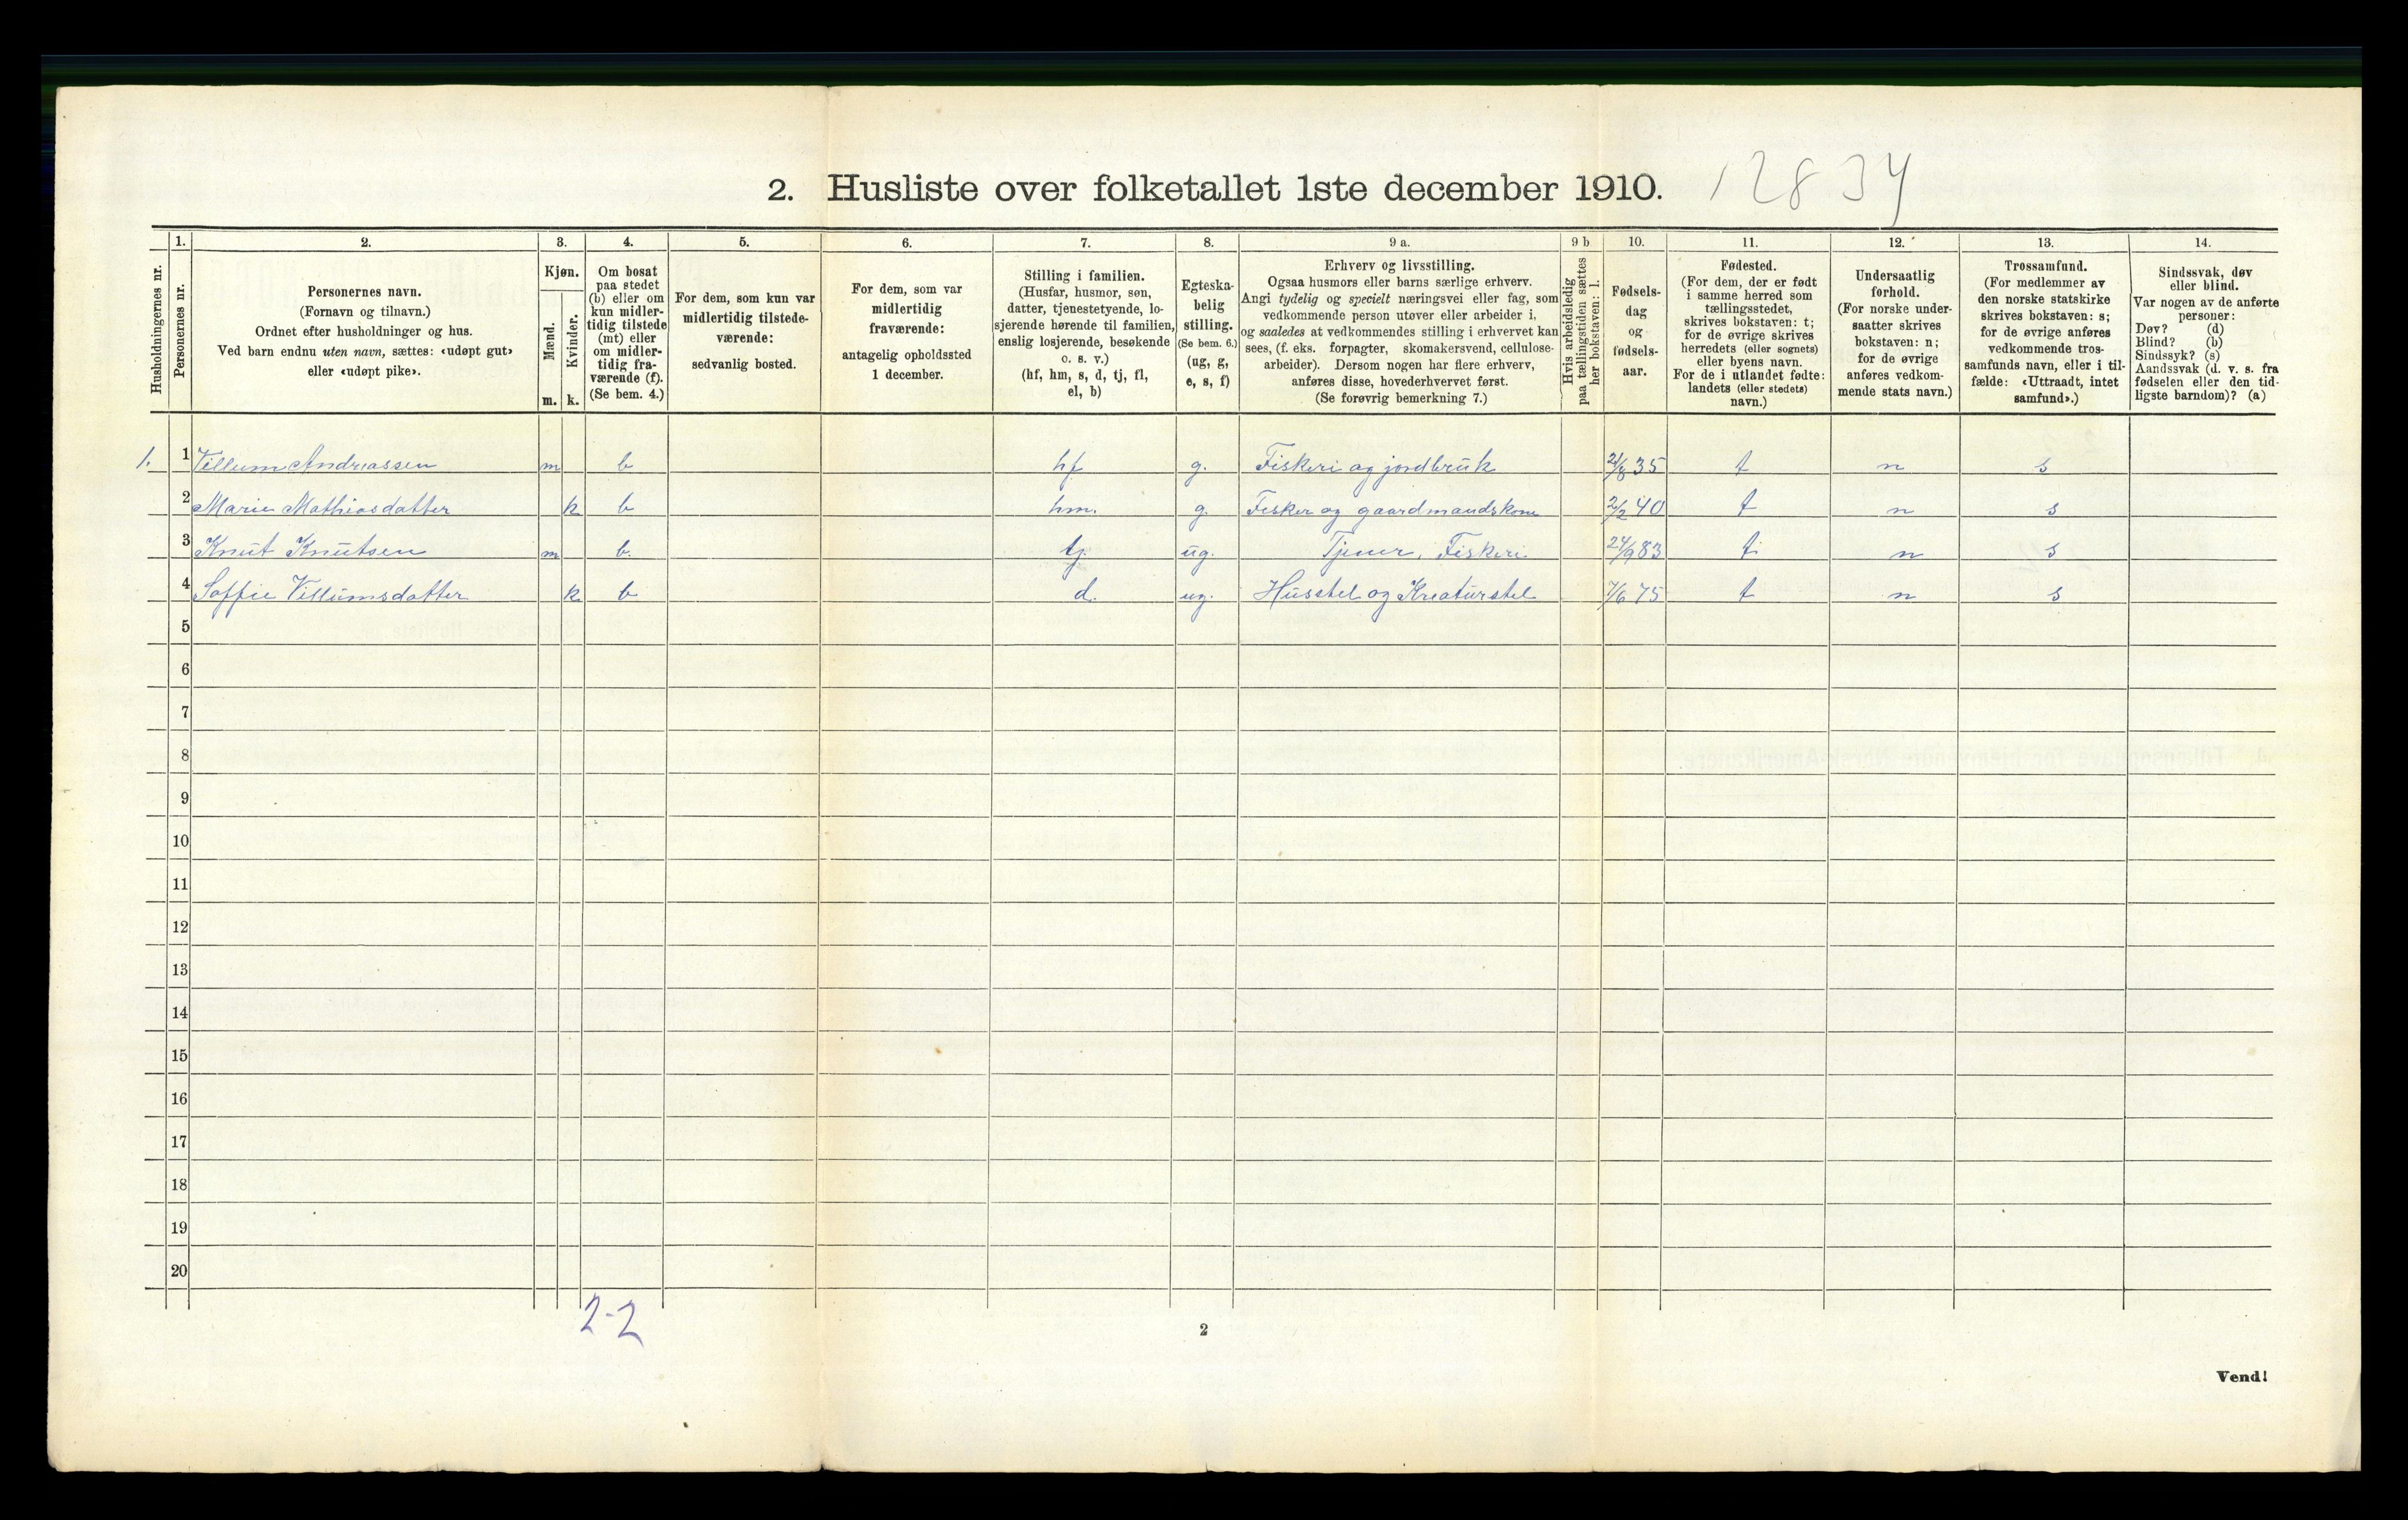 2. Husliste over folketallet 1ste december 1910. 12834
1. 2. 3. 4. 5. 6. 7. 8. 9 a. 9 b 10. 11. 12. 13. 14.
Husholdningernes nr.
Personernes nr.
Personernes navn.
(Fornavn og tilnavn.)
Ordnet efter husholdninger og hus.
Ved barn endnu uten navn, sættes: «udøpt gut»
eller «udøpt pike».
Kjøn.
Mænd.
Kvinder.
m. k.
Om bosat
paa stedet
(b) eller om
kun midler-
tidig tilstede
(mt) eller
om midler-
tidig fra-
værende (f).
(Se bem. 4.)
For dem, som kun var
midlertidig tilstede-
værende:
sedvanlig bosted.
For dem, som var
midlertidig
fraværende:
antagelig opholdssted
1 december.
Stilling i familien.
(Husfar, husmor, søn,
datter, tjenestetyende, lo-
sjerende hørende til familien,
enslig losjerende, besøkende
o. s. v.)
(hf, hm, s, d, tj, fl,
el, b)
Egteska-
belig
stilling.
(Se bem. 6.)
(ug, g,
e, s, f)
Erhverv og livsstilling.
Ogsaa husmors eller barns særlige erhverv.
Angi tydelig og specielt næringsvei eller fag, som
vedkommende person utøver eller arbeider i,
og saaledes at vedkommendes stilling i erhvervet kan
sees, (f. eks. forpagter, skomakersvend, cellulose-
arbeider). Dersom nogen har flere erhverv,
anføres disse, hovederhvervet først.
(Se forøvrig bemerkning 7.)
Hvis arbeidsledig
paa tællingstiden sættes
her bokstaven: l.
Fødsels-
dag
og
fødsels-
aar.
Fødested.
(For dem, der er født
i samme herred som
tællingsstedet,
skrives bokstaven: t;
for de øvrige skrives
herredets (eller sognets)
eller byens navn.
For de i utlandet fødte:
landets (eller stedets)
navn.)
Undersaatlig
forhold.
(For norske under-
saatter skrives
bokstaven: n;
for de øvrige
anføres vedkom-
mende stats navn.)
Trossamfund.
(For medlemmer av
den norske statskirke
skrives bokstaven: s;
for de øvrige anføres
vedkommende tros-
samfunds navn, eller i til-
fælde: «Uttraadt, intet
samfund».)
Sindssvak, døv
eller blind.
Var nogen av de anførte
personer:
Døv? (d)
Blind? (b)
Sindssyk? (s)
Aandssvak (d. v. s. fra
fødselen eller den tid-
ligste barndom)? (a)
1. 1 Villum Andreassen m b hf g. Fiskeri og jordbruk 21/8 35 t n s
2 Marie Mathiasdatter k b hm. g. Fisker og gaardmandskone 2/2 40 t n s
3 Knut Knutsen m b. tj. ug. Tjener, Fiskeri 24/9 83 t n s
4 Soffie Villumsdatter k b d. ug. Husstel og Kreaturstel 7/6 75 t n s
5
6
7
8
9
10
11
12
13
14
15
16
17
18
19
20
2-2
2
Vend!